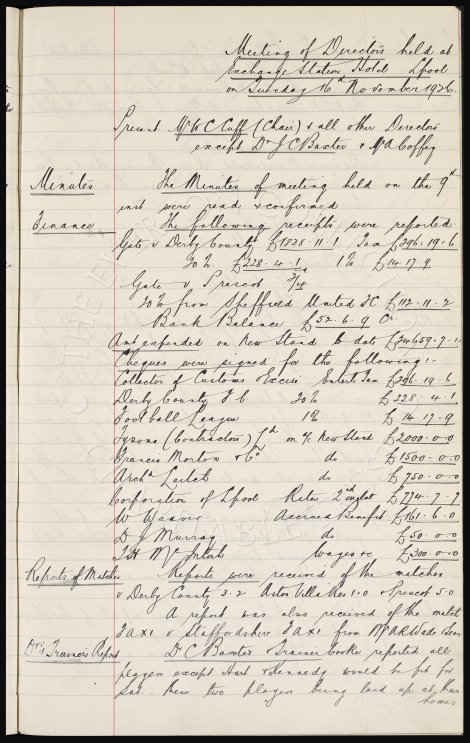 Meeting of Directors held at
Exchange Station Hotel Lpool
on Tuesday 16th November 1926.
Present Mr W C Cuff (Chair) & all other Directors
except Dr J C Baxter & Mr A Coffey
Minutes The Minutes of meeting held on the 9th
inst were read & confirmed
Finance The following receipts were reported
Gate v Derby County £1828.11.1 Tax £296.19.6
20% £228.4.1 1% £14.17.9
Gate v Prescot
20% from Sheffield United FC £112.11.2
Bank Balance £52.6.9 Cr.
Amt expended on New Stand to date £24659.7.
Cheques were signed for the following:-
Collector of Customs Excise Enterts Tax £296.19.6
Derby County F C 20% £228.4.1
Football League 1% £14.17.9
Tysons (Contractors) Ld on a/c New Stand £2000.0.0
Francis Morton & Co do £1500.0.0
Archd Leitch do £750.0.0
Corporation of Lpool Rates 2nd £774.7.7
W Weaver Accrued Benefit £161.6.0
D J Murray do £50.0.0
T H McIntosh Wages &c £300.0.0
Reports of Matches Reports were received of the matches
v Derby County 3-2 Aston Villa Res 1-0 v Prescot 5-0
A report was also received of the match
v Staffordshire from Mr A R Wade
Dr & Trainers Report Dr C Baxter & Trainer Cooke reported all
players except Hart & Kennedy would be fit for
Sat. these two players being laid up at their
homes